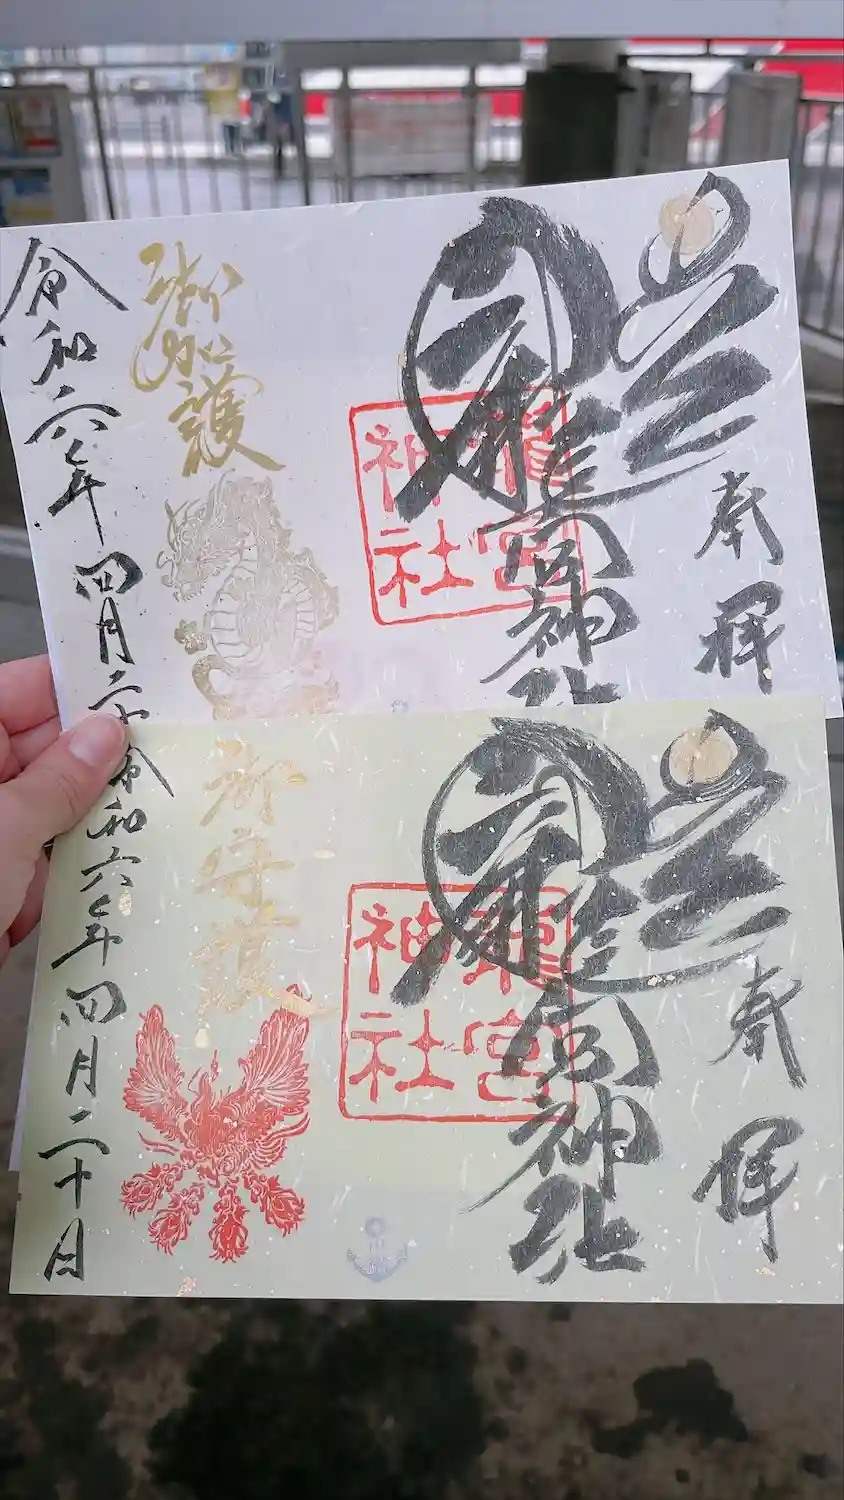 奉拝
龍宮神社
龍宮神社
御加護
令和六年四月二十
奉拝
龍宮神社
龍宮神社
御守護
令和六年四月二十日